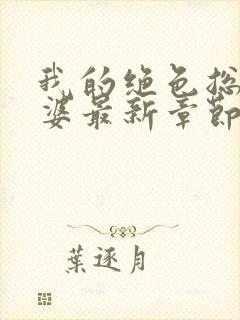 我的绝色总
婆最新章節
葉逐月